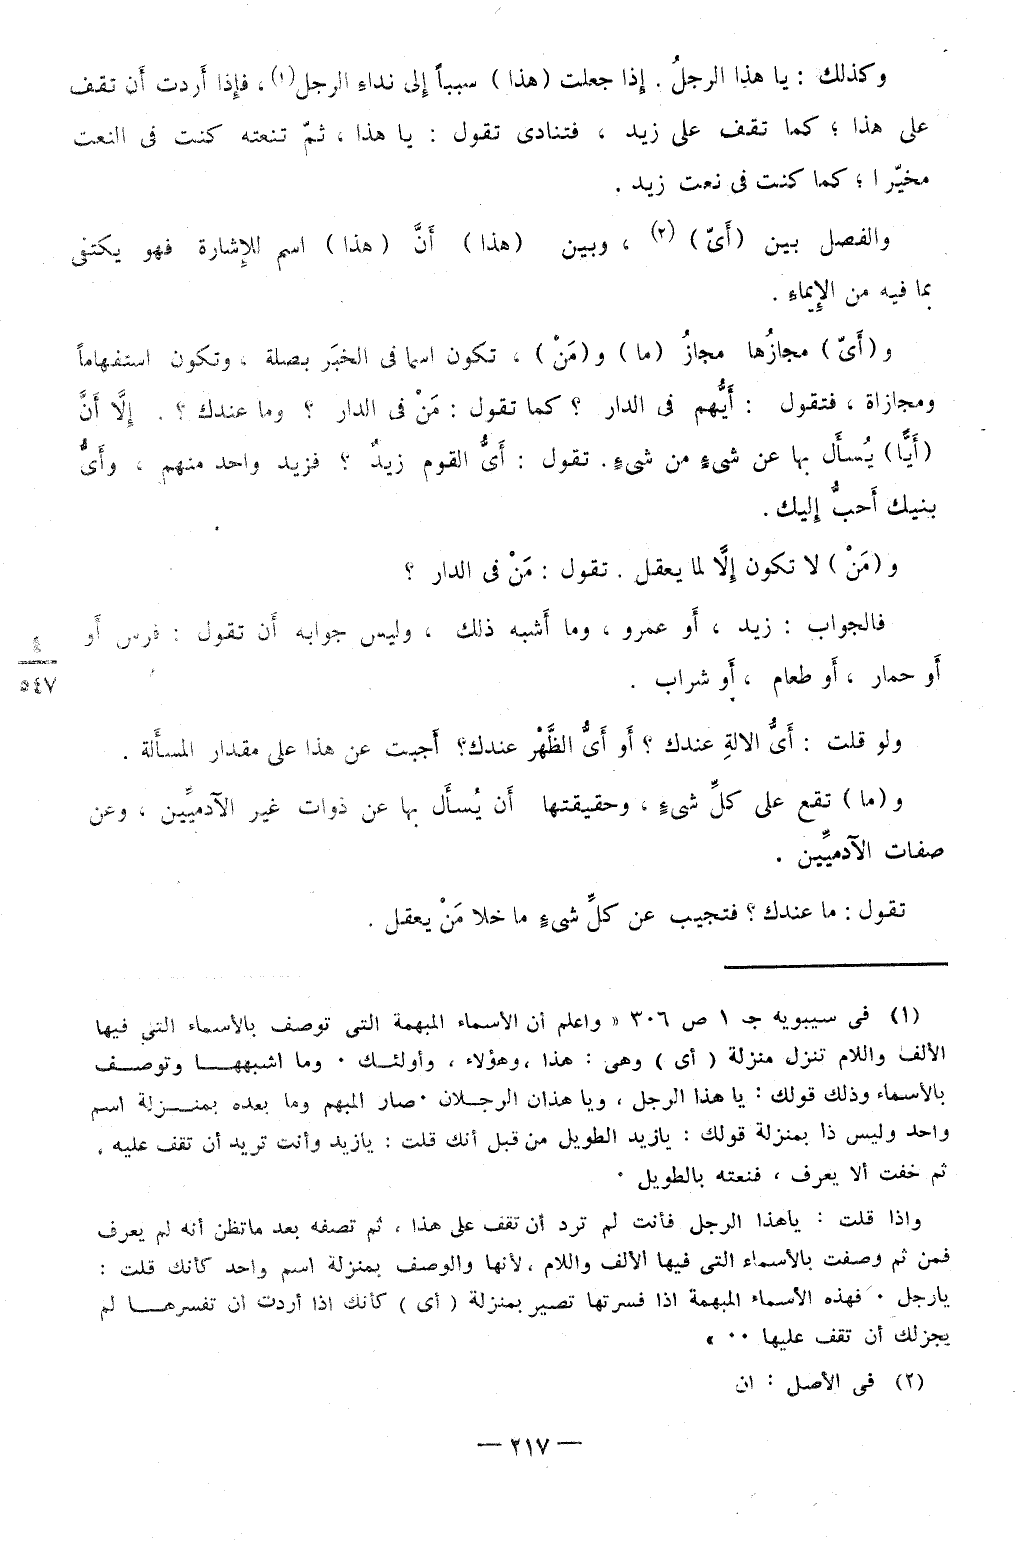 وكذلك : يا هذا الرجلُ . إذا جعلت (هذا) سبباً إلى نداءِ الرجل(١)، فإذا أَردت أَن تقف
على هذا ؛ كما تقف على زيد ، فتنادى تقول : يا هذا ، ثمّ تنعته كنت فى النعت
مخيّرا ؛ كما كنت فى نعت زيد .
والفصل بين (أَىّ) (٢) ، وبين (هذا) أَنَّ (هذا) اسم للإِشارة فهو يكتفى
بما فيه من الإِيماءِ .
و(أَىّ) مجازُها مجازُ (ما) و(مَنْ) ، تكون اسما فى الخبَر بصلة ، وتكون استفهاماً
ومجازاة ، فتقول : أَيُّهم فى الدار ؟ كما تقول : مَنْ فى الدار ؟ وما عندك ؟ . إِلَّا أَنَّ
(أَيًّا) يُسأَل بها عن شىءٍ من شىءٍ. تقول : أَىُّ القوم زيدٌ ؟ فزيد واحد منهم ، وأَىُّ
بنيك أَحبُّ إِليك .
و(مَنْ) لا تكون إِلَّا لما يعقل . تقول : مَنْ فى الدار ؟
فالجواب : زيد ، أَو عمرو ، وما أَشبه ذلك ، وليس جوابه أَن تقول : فرس أَو
أَو حمار ، أَو طعام ، أَو شراب .
٤
٥٤٧
ولو قلت : أَىُّ الالةِ عندك ؟ أَو أَىُّ الظَّهْر عندك؟ أَجبت عن هذا على مقدار المسأَلة .
و(ما) تقع على كلِّ شىءٍ ، وحقيقتها أَن يُسأَل بها عن ذوات غير الآدميِّين ، وعن
صفات الآدميِّين .
تقول : ما عندك ؟ فتجيب عن كلِّ شىءٍ ما خلا مَنْ يعقل .
(١) فى سيبويه جـ ١ ص ٣٠٦ « واعلم أن الأسماء المبهمة التى توصف بالأسماء التى فيها
الألف واللام تنزل منزلة ( أى ) وهى : هذا ، وهؤلاء ، وأولئك ٠ وما اشبهها وتوصف
بالأسماء وذلك قولك : يا هذا الرجل ، ويا هذان الرجلان ٠ صار المبهم وما بعده بمنزلة اسم
واحد وليس ذا بمنزلة قولك : يازيد الطويل من قبل أنك قلت : يازيد وأنت تريد أن تقف عليه ،
ثم خفت ألا يعرف ، فنعته بالطويل ٠
واذا قلت : ياهذا الرجل فأنت لم ترد أن تقف على هذا ، ثم تصفه بعد ماتظن أنه لم يعرف
فمن ثم وصفت بالأسماء التى فيها الألف واللام ، لأنها والوصف بمنزلة اسم واحد كأنك قلت :
يارجل ٠ فهذه الأسماء المبهمة اذا فسرتها تصير بمنزلة ( أى ) كأنك اذا أردت ان تفسرها لم
يجزلك أن تقف عليها ٠٠ »
(٢) فى الأصل : ان
— ٢١٧ —